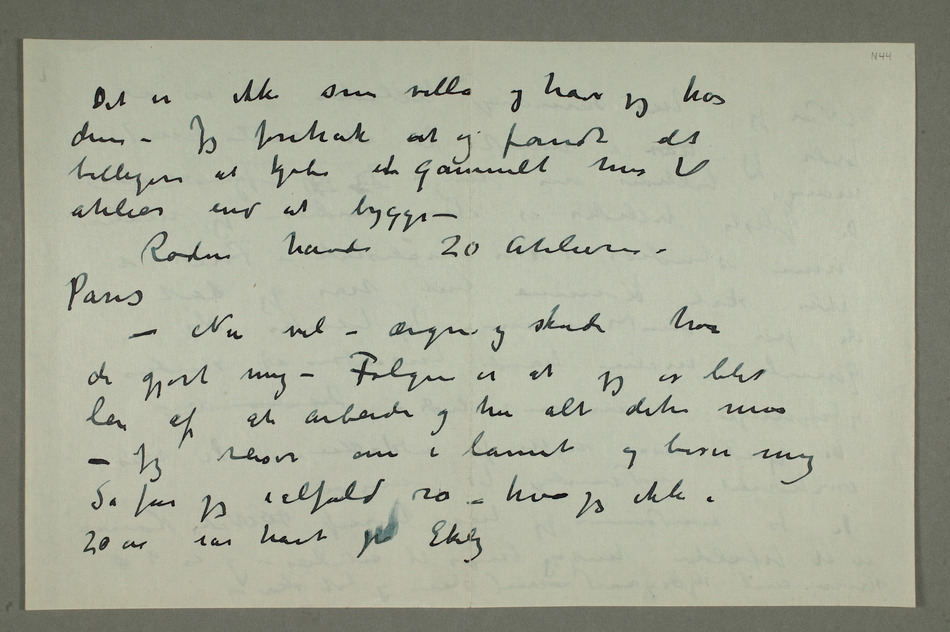 N44
Det er ikke som villa og har jeg hos
dem – Jeg foretrak at og fandt det
billigere at kjøbe et gammelt hus
atelier end at bygge –
Rodin havde 20 Atelierer –
Paris
– Nu vel – ærgre og skade har
de gjort mig – Følgen er at jeg er blet
lei af at arbeide og har alt dette
– Jeg reiser om i landet og mig
Så får jeg ialfald ro – hva jeg ikke i
20 år har havt på Ekely